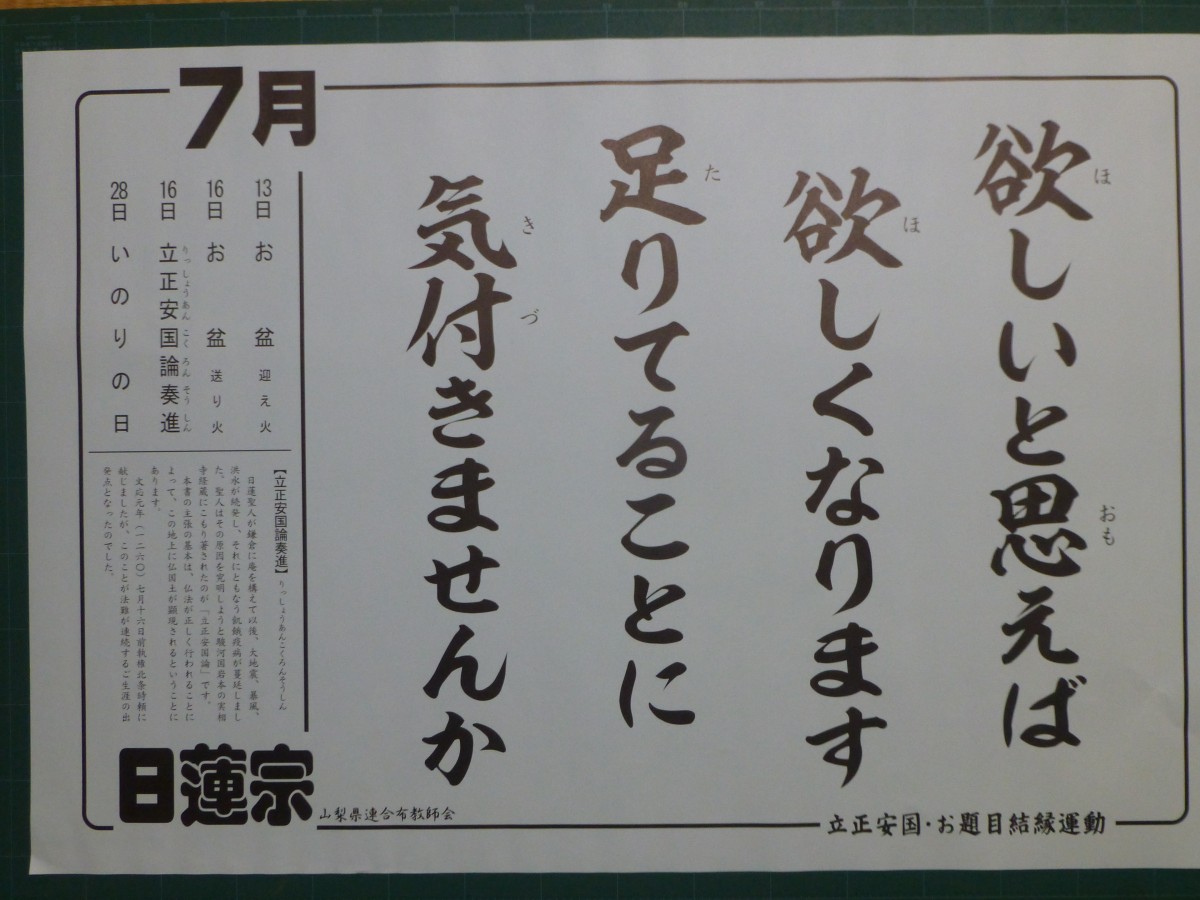 欲しいと思えば
欲しくなります
足りてることに
気付きませんか
7月
13日 お盆 迎え火
16日 お盆 送り火
16日 立正安国論奏進
28日 いのりの日
【立正安国論奏進】りっしょうあんこくろんそうしん
日蓮聖人が鎌倉に庵を構えて以後、大地震、暴風、
洪水が続発し、それにともなう飢餓疫病が蔓延しまし
た。聖人はその原因を究明しようと駿河国岩本の実相
寺経蔵にこもり著されたのが「立正安国論」です。
本書の主張の基本は、仏法が正しく行われることに
よって、この地上に仏国土が顕現されるということに
あります。
文応元年(一二六〇)七月十六日前執権北条時頼に
献じましたが、このことが法難が連続するご生涯の出
発点となったのでした。
日蓮宗
山梨県連合布教師会
立正安国・お題目結縁運動